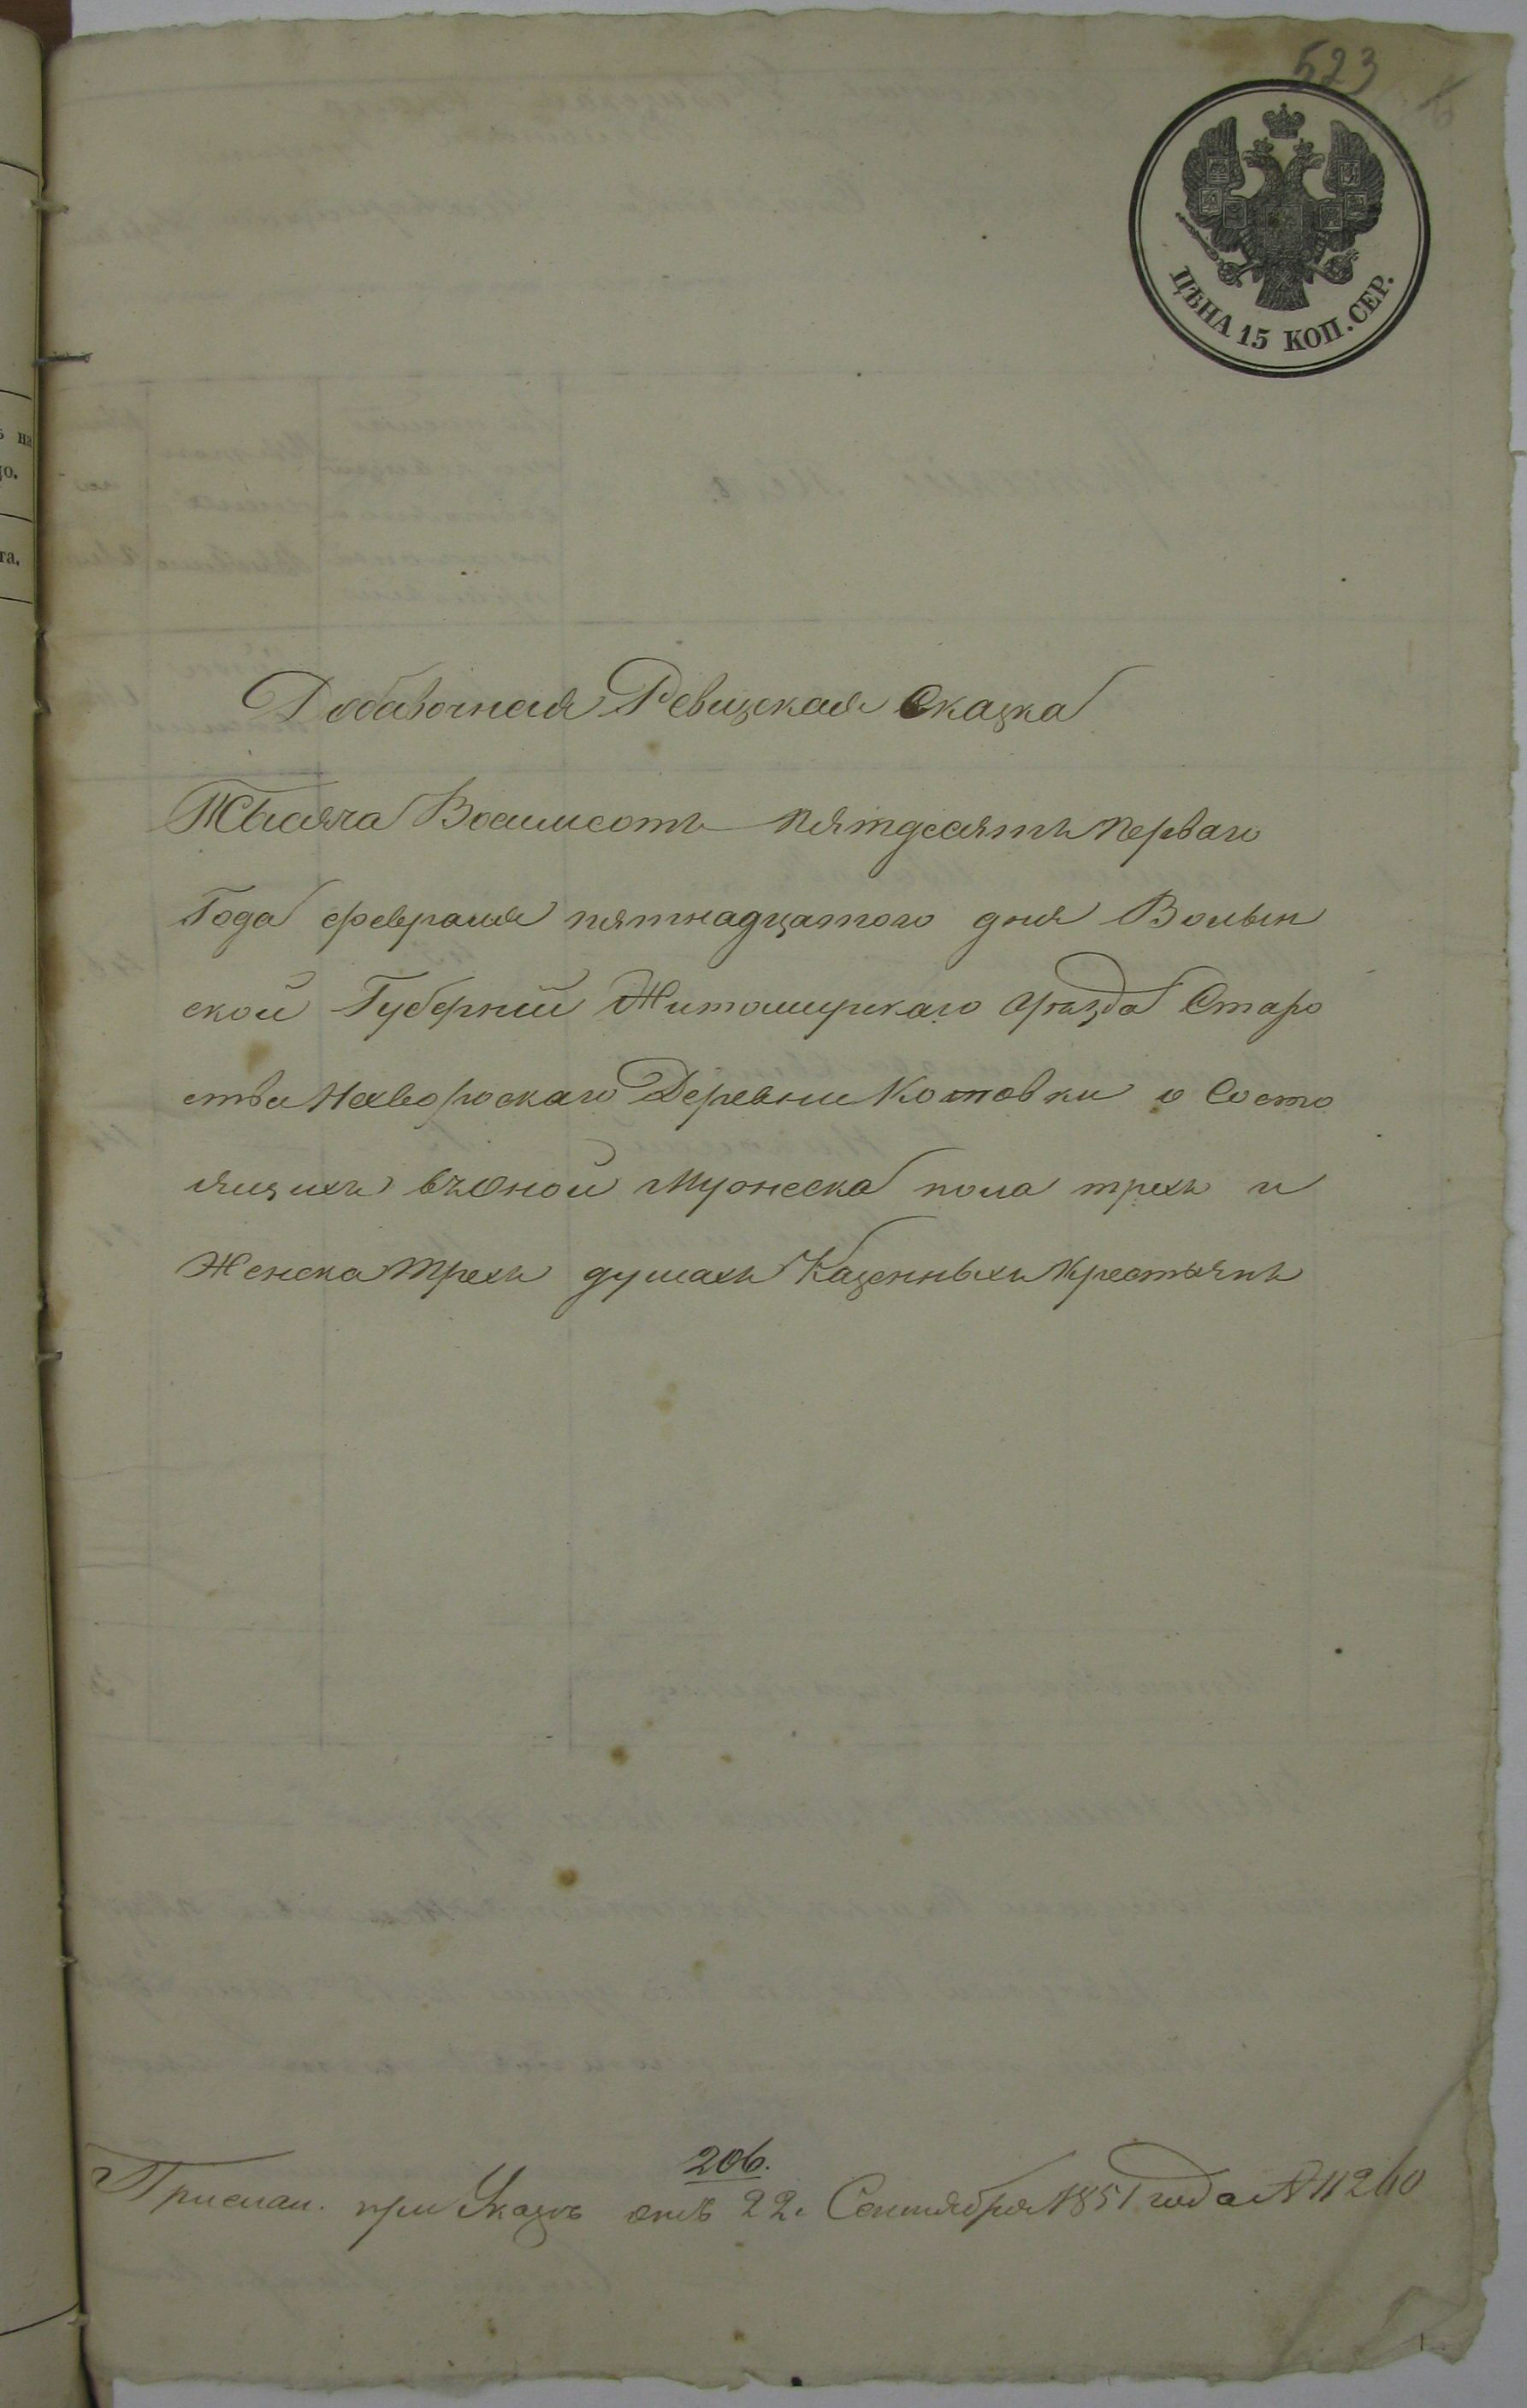 523
ЦѢНА 15 КОП. СЕР.
ъ на
до.
та.
Добавочная Ревизская Сказка
Тысяча Восимсотъ пятдесятъ перваго
Года февраля пятнадцатого дня Волын
ской Губерніи Житомирскаго Уѣзда Старо
ства Деревни Котовки о Состо
ящихъ въ оной Мужеска пола трехъ и
Женска трехъ душахъ Казенныхъ Крестьянъ
206.
Прислан. при Указѣ отъ 22. Сентября 1851 года № 11260